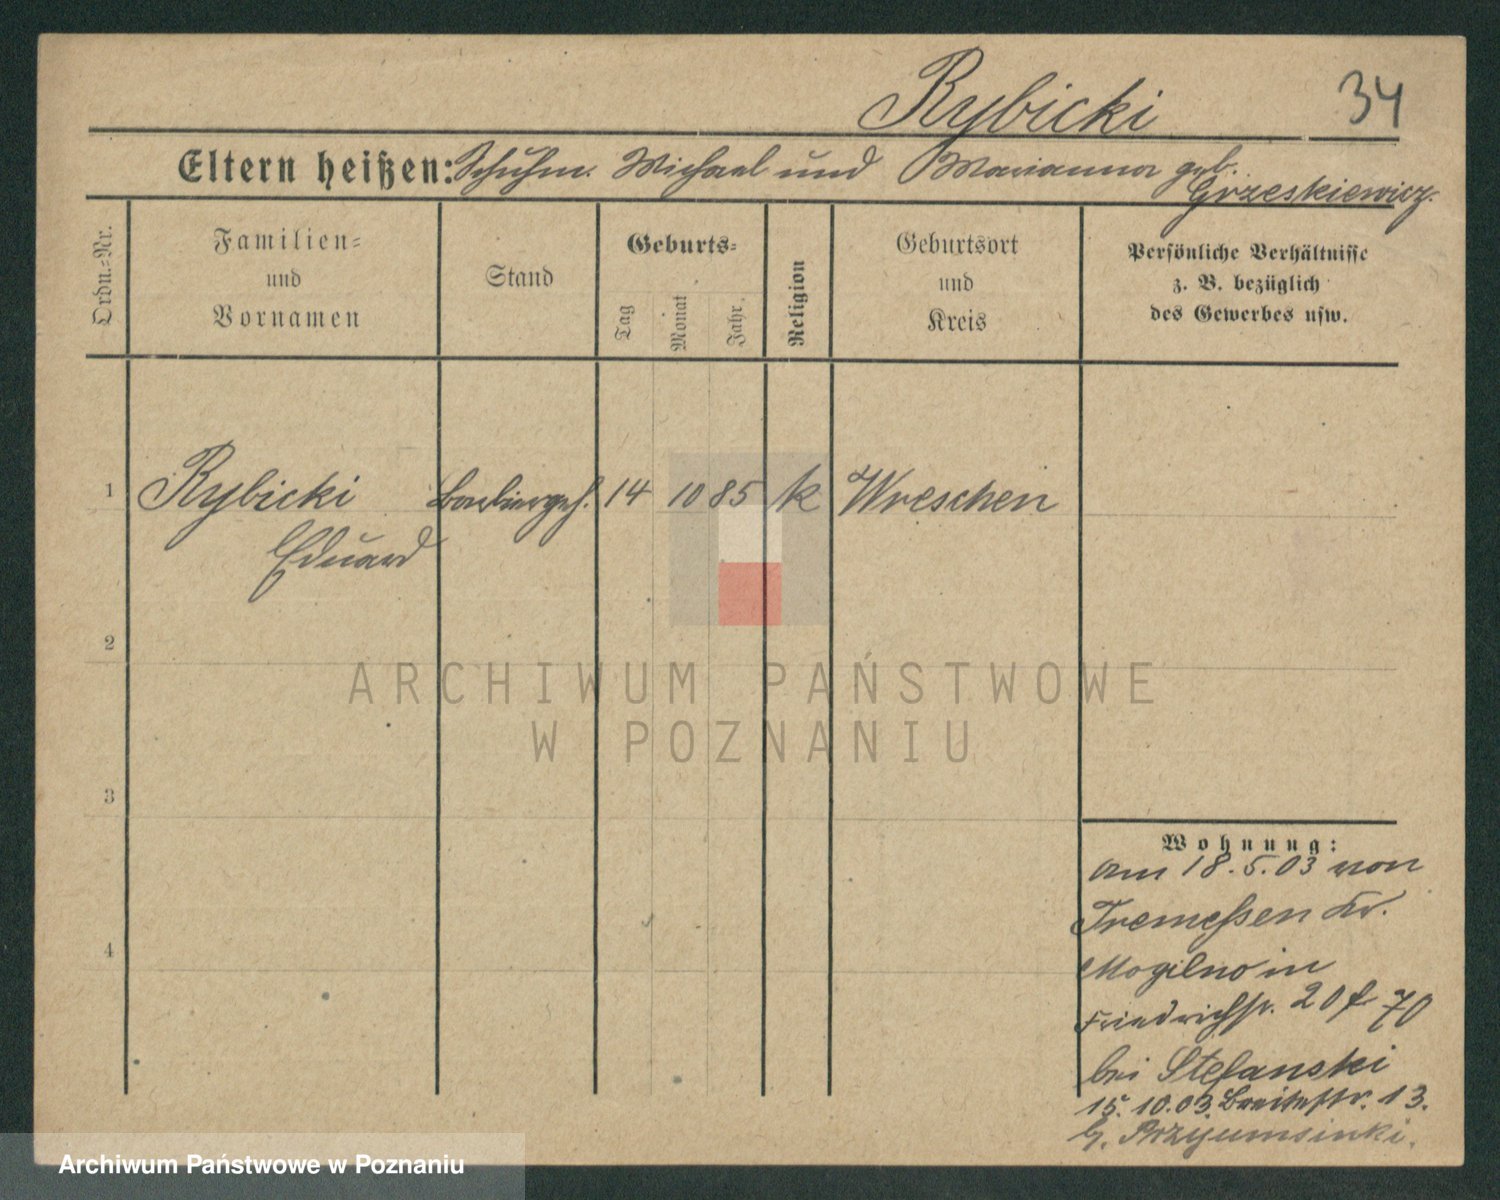 Rybicki
34
Eltern heißen: Schuhm. Michael und Marianna geb.
Grzeskiewicz.
Ordn.-Nr.
Familien-
und
Vornamen
Stand
Geburts-
Tag
Monat
Jahr
Religion
Geburtsort
und
Kreis
Persönliche Verhältnisse
z. B. bezüglich
des Gewerbes usw.
1 Rybicki Barbiergeh. 14 10 85 k Wreschen
Eduard
2
3
4
Wohnung:
am 18.5.03 von
Tremeßen Kr.
Mogilno in
Friedrichstr. 20
bei Stefanski
15.10.03. Breitestr. 13.
b.
ARCHIWUM PAŃSTWOWE
W POZNANIU
Archiwum Państwowe w Poznaniu